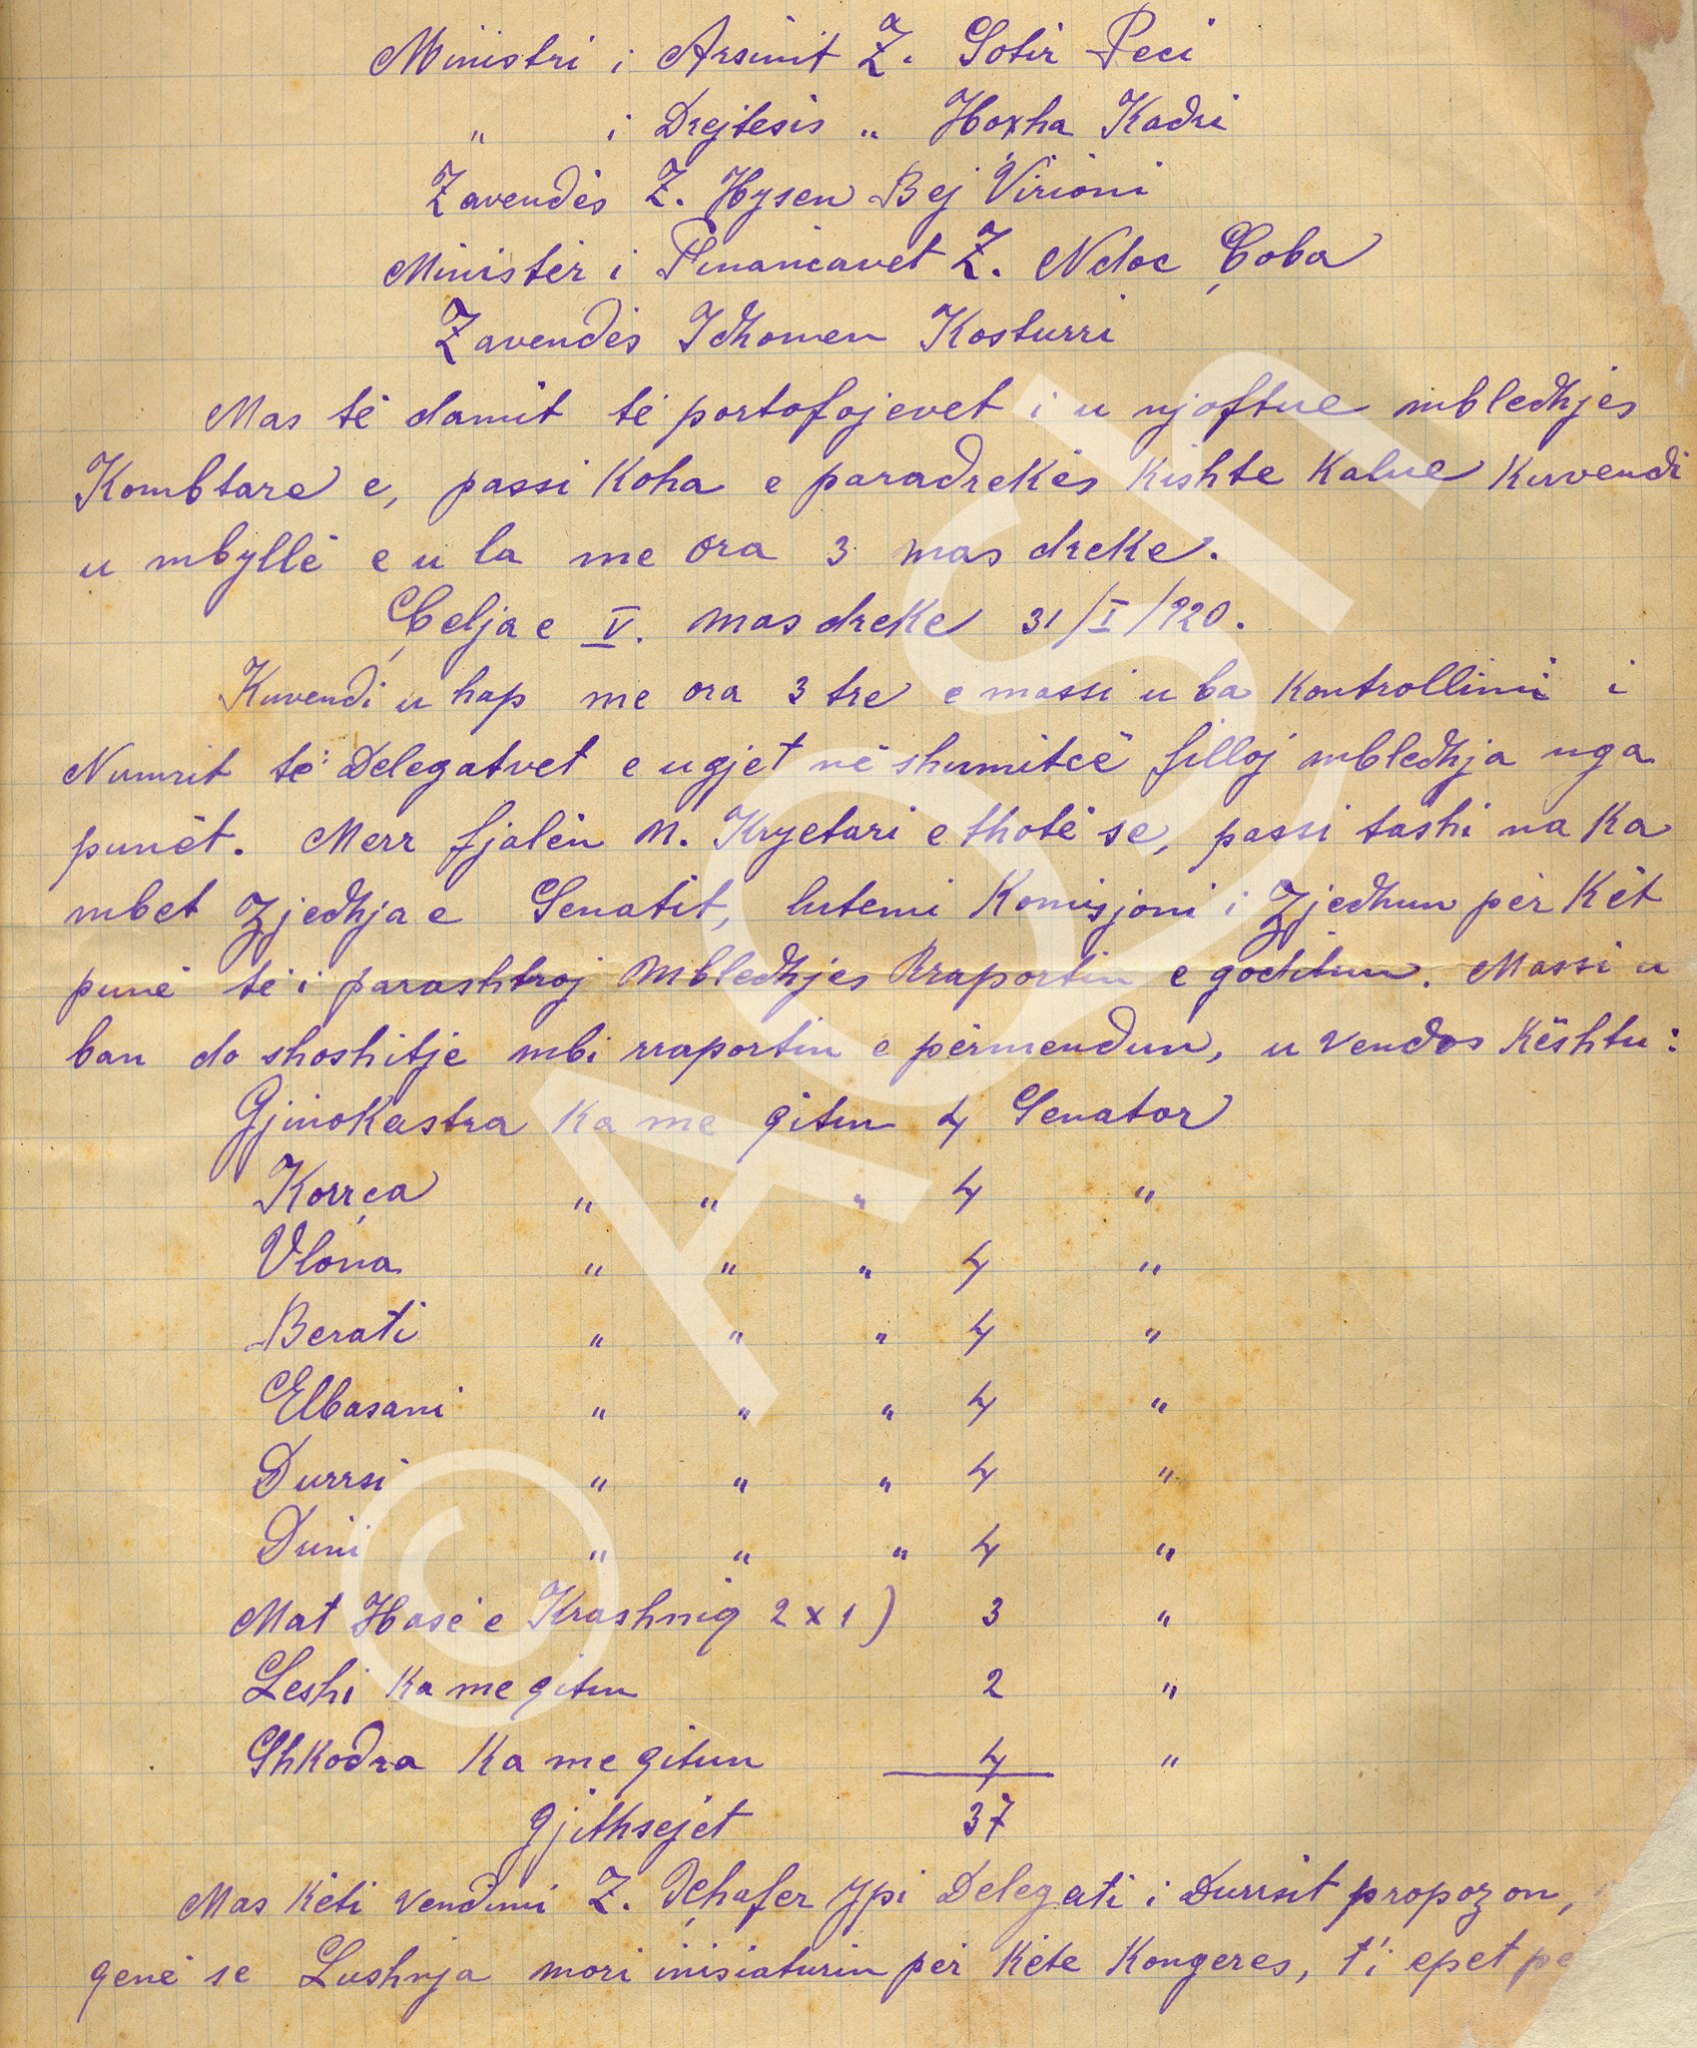 Ministri i Arsimit Z. Sotir Peci
" i Drejtesis " Hoxha Kadri
Zavendës Z. Hysen Bej Virioni
Ministër i Financavet Z. Ndoc Çoba
Zavendës Idhomen Kosturri
Mas të damit të portofojevet i u njoftue mbledhjes
Kombtare e, passi koha e paradrekës kishte kalue Kuvendi
u mbyllë e u la me ora 3 mas dreke.
Çelja e V. mas dreke 31/I/920.
Kuvendi u hap me ora 3 tre e massi u ba kontrollimi i
Numrit të Delegatvet e u gjet në shumitcë filloj mbledhja nga
punët. Merr fjalën N. Kryetari e thotë se, passi tashi na ka
mbet zjedhja e Senatit, lutemi Komisjoni i zjedhun për kët
punë të i parashtroj Mbledhjes Rraportin e goditun. Massi u
ban do shoshitje mbi rraportin e përmendun, u vendos kështu:
Gjinokastra ka me qitun 4 Senator
Korrça " " " 4 "
Vlona " " " 4 "
Berati " " " 4 "
Elbasani " " " 4 "
Durrsi " " " 4 "
Dimi " " " 4 "
Mat Hasë e Krashniq 2 x 1) 3 "
Leshi ka me qitun 2 "
Shkodra ka me qitun 4 "
gjithsejet 37
Mas këti vendimi Z. Xhafer Ypi Delegati i Durrsit propozon,
qenë se Lushnja mori inisiaturin për këte Kongeres, t'i epet
© AQSH